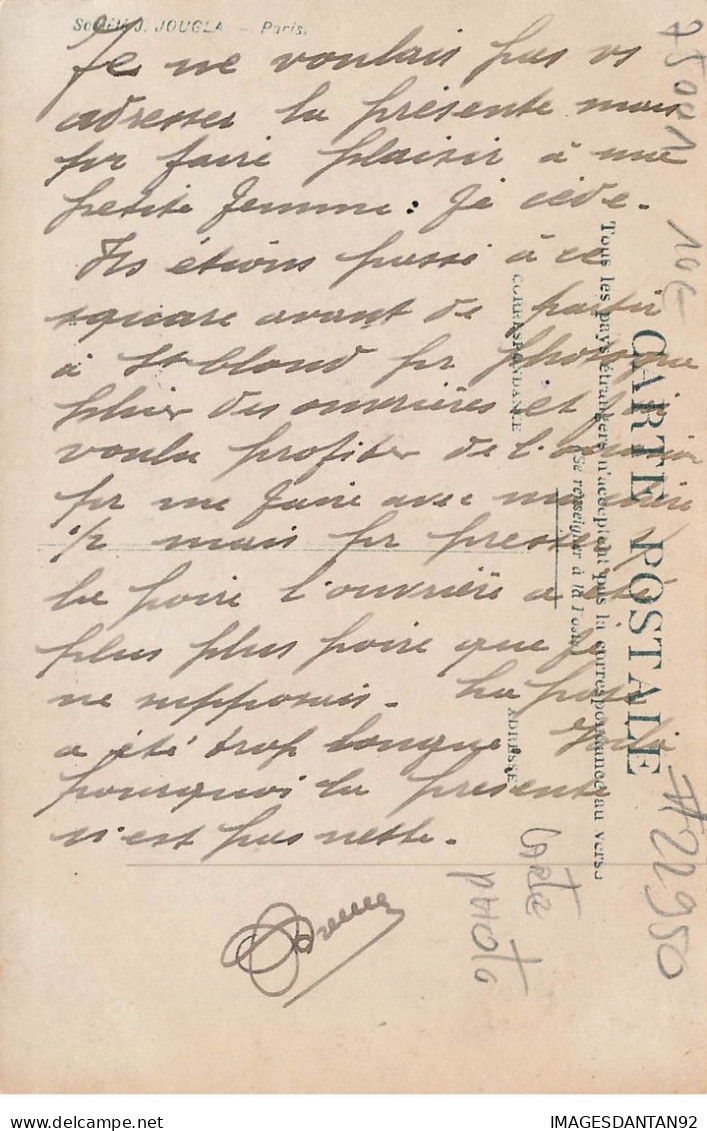 Société J. JOUGLA — Paris.
Je ne voulais pas vs
adresser la présente mais
pr faire plaisir à ma
petite femme : Je cède.
Ns étions passé à ce
square avant de partir
à St Cloud pr photogra
phier des ouvrières et j'ai
voulu profiter de l'
pr me faire avec ma chère
1/2 mais pr presser
la poire l'ouvrière a été
plus plus poire que je
ne supposais. La pose
a été trop longue. Voilà
pourquoi la présente
n'est pas nette.
CARTE POSTALE
Tous les pays étrangers n'acceptent pas la correspondance au verso
(Se renseigner à la Poste)
CORRESPONDANCE
ADRESSE
75001
10€
#22950
CARTE
PHOTO
IMAGESDANTAN92